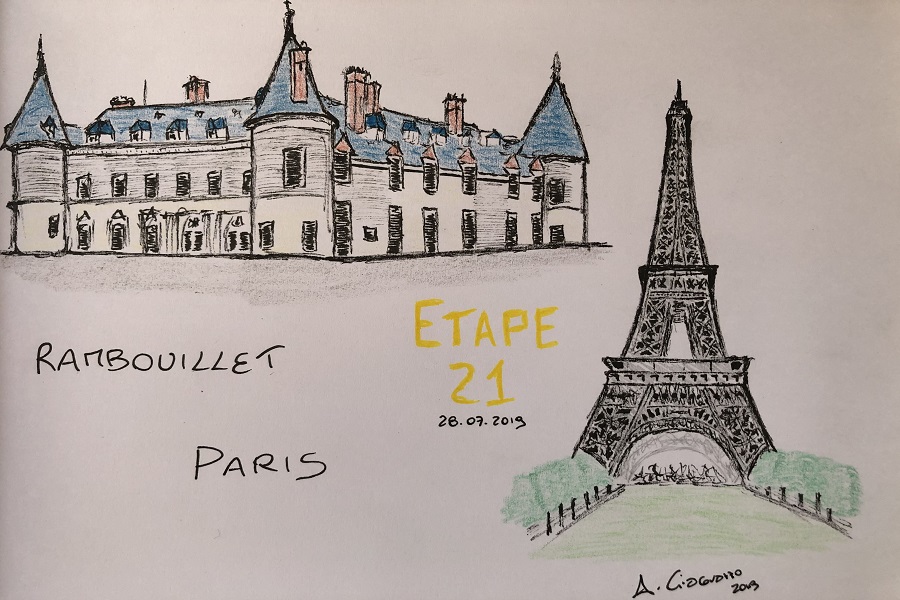 RAMBOUILLET
PARIS
ETAPE
21
28.07.2019
A.
2019